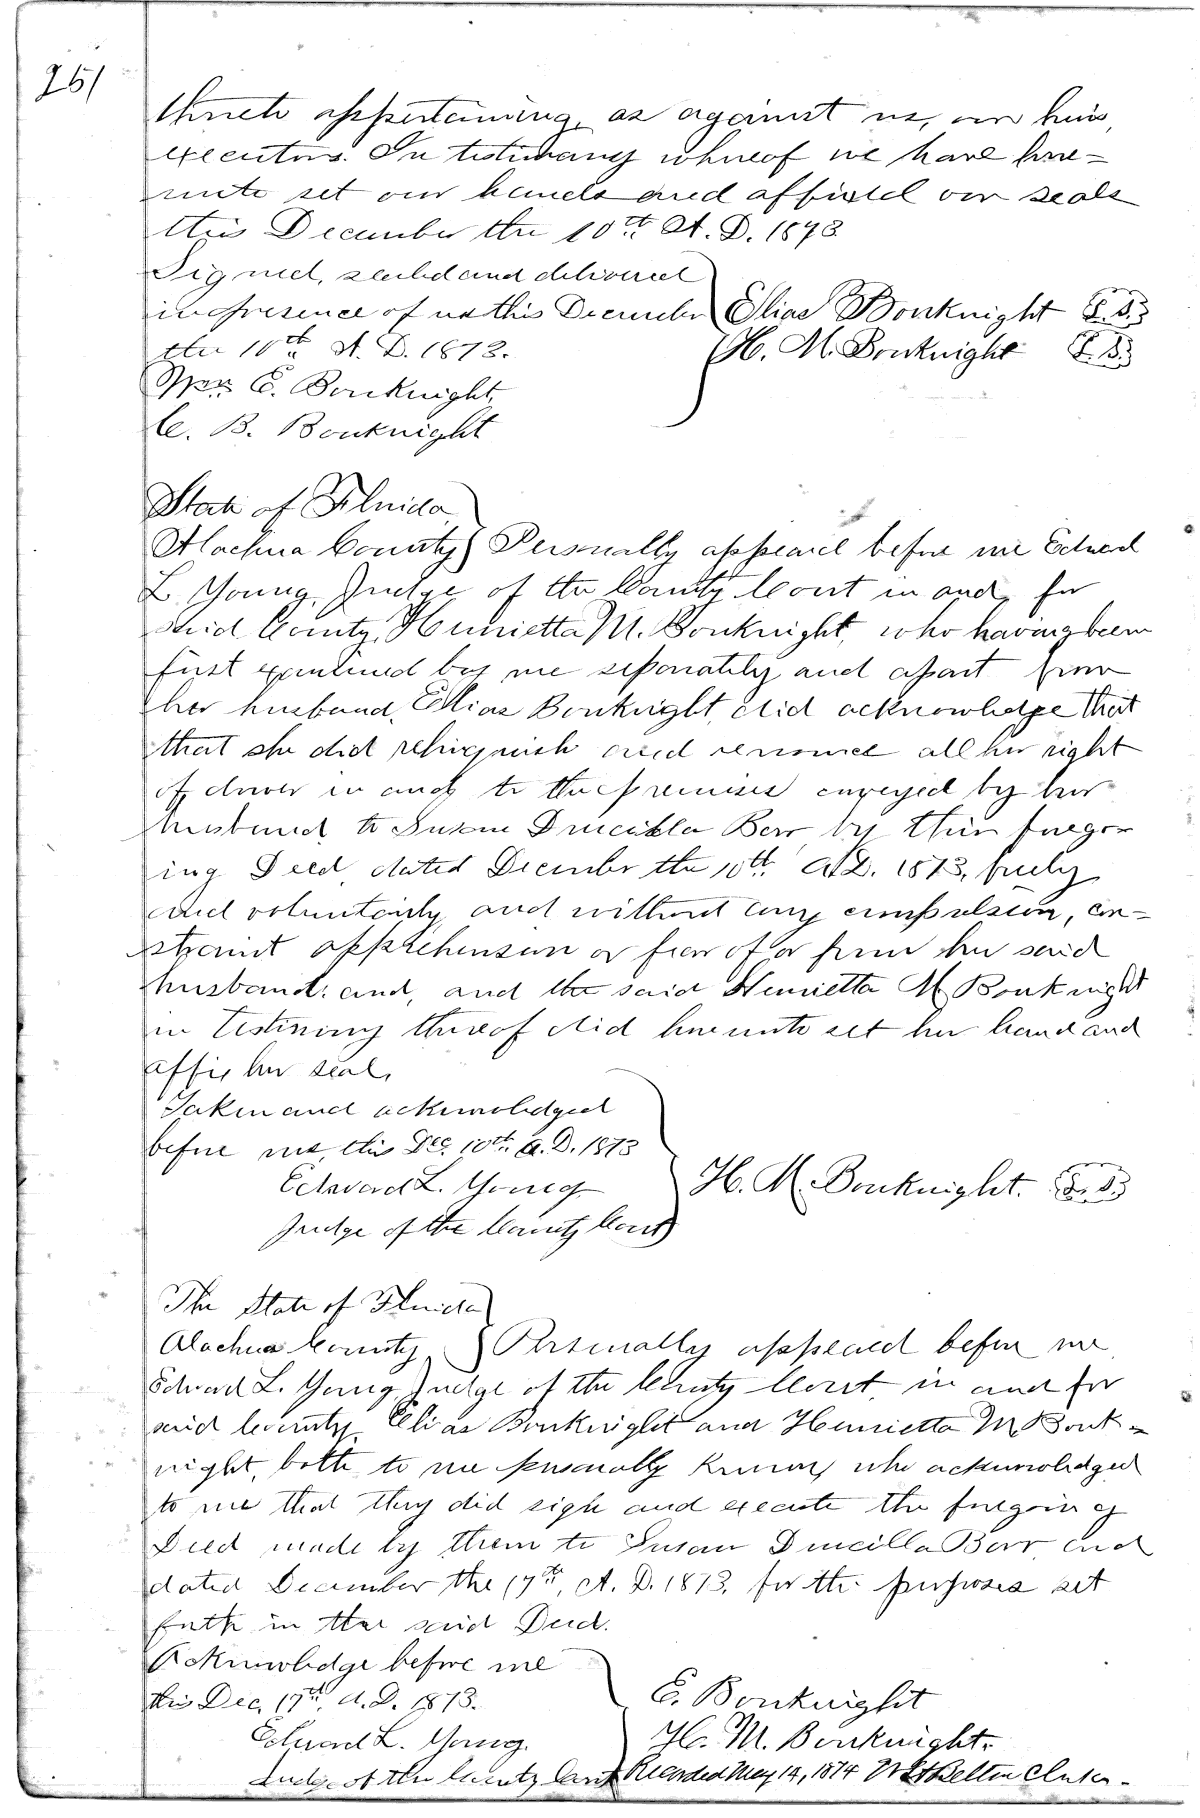 251
thereto appertaining, as against us, our heirs,
executors. In testimony whereof we have here=
unto set our hands and affixed our seals
this December the 10th A. D. 1873.
Signed, sealed and delivered
in presence of us this December
the 10th A. D. 1873.
Elias Bouknight L.S.
H. M. Bouknight L.S.
Wm E. Bouknight,
C. B. Bouknight
State of Florida
Alachua County Personally appeared before me Edward
L. Young, Judge of the County Court in and for
said County, Henrietta M. Bouknight, who having been
first examined by me separately and apart from
her husband, Elias Bouknight, did acknowledge that
that she did relinquish and renounce all her right
of dower in and to the premises conveyed by her
husband to Susan Drucilla Barr by their forego-
ing Deed, dated December the 10th A.D. 1873, freely
and voluntarily and without any compulsion, con=
straint apprehension or fear of or from her said
husband. and, and the said Henrietta M Bouknight
in testimony thereof did hereunto set her hand and
affix her seal.
Taken and acknowledged
before me, this Dec. 10th A. D. 1873
Edward L. Young
Judge of the County Court
H. M. Bouknight. L.S.
The State of Florida
Alachua County Personally appeared before me
Edward L. Young Judge of the County Court in and for
said County, Elias Bouknight and Henrietta M. Bouk=
night, both to me personally known, who acknowledged
to me that they did sign and execute the foregoing
Deed made by them to Susan Drucilla Barr and
dated December the 17th, A. D. 1873, for the purposes set
forth in the said Deed.
Acknowledge before me
this Dec. 17th, A. D. 1873.
Edward L. Young.
Judge of the County Court
E. Bouknight
H. M. Bouknight.
Recorded May 14, 1874 Clerk.